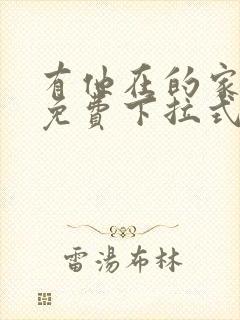 有他在的家
免費下拉式
雷湯布林